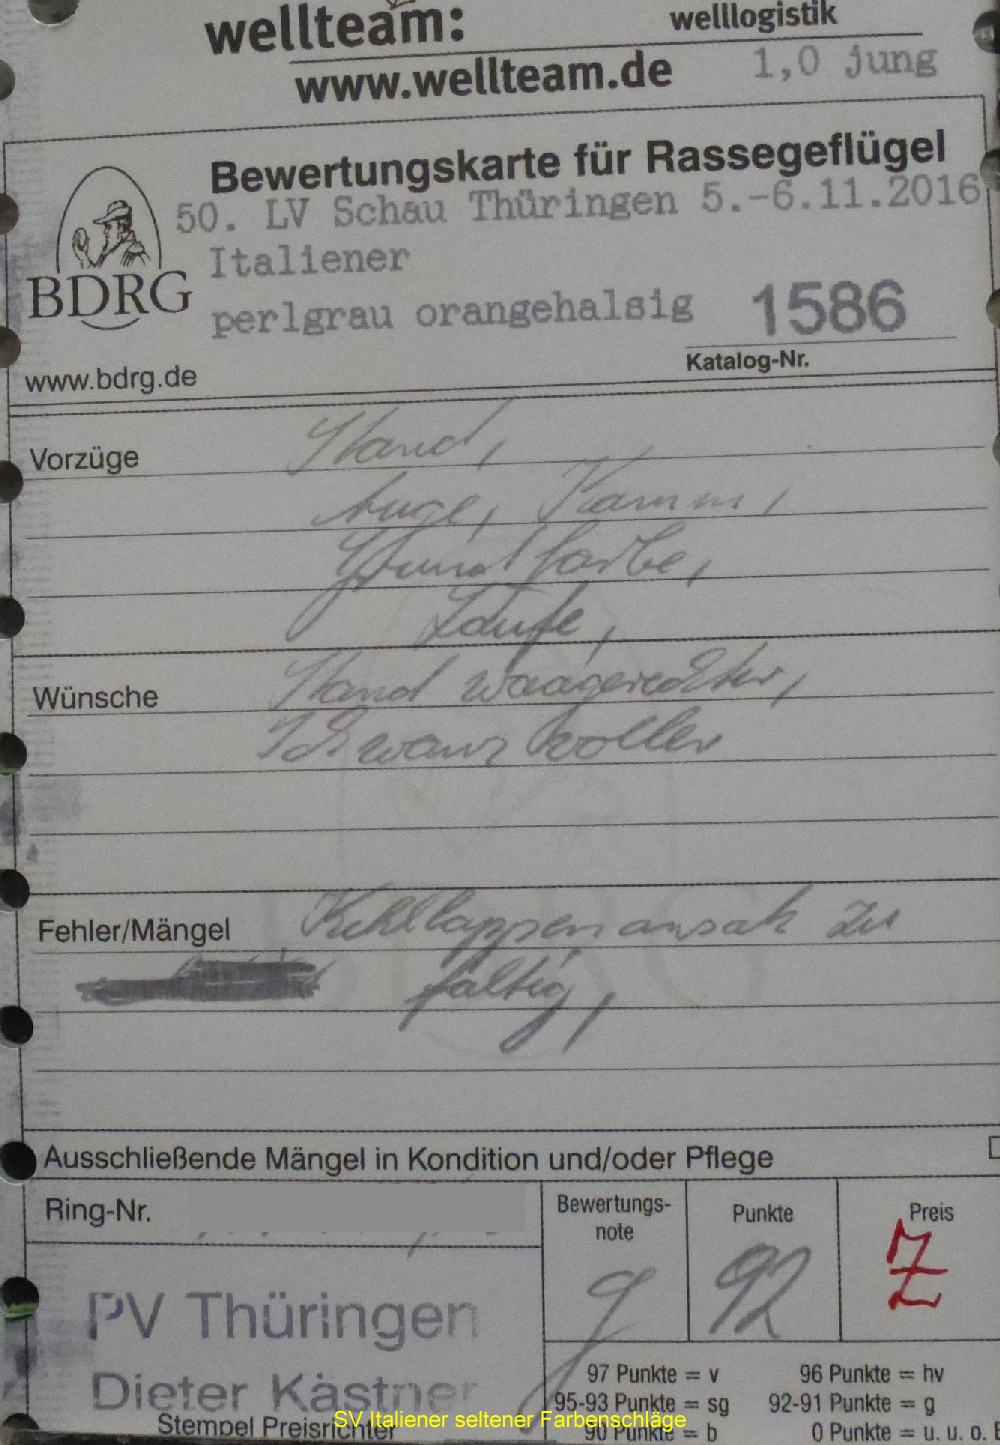 wellteam:
welllogistik
www.wellteam.de
1,0 jung
Bewertungskarte für Rassegeflügel
50. LV Schau Thüringen 5.-6.11.2016
Italiener
BDRG
perlgrau orangehalsig
1586
Katalog-Nr.
www.bdrg.de
Vorzüge
Stand,
Auge, Kamm,
Grundfarbe,
Läufe,
Wünsche
Stand waagerechter,
Schwanz voller
Fehler/Mängel
Kehllappenansatz zu
faltig,
Ausschließende Mängel in Kondition und/oder Pflege
Ring-Nr.
Bewertungs-
note
Punkte
Preis
g
92
Z
PV Thüringen
Dieter Kästner
Stempel Preisrichter
97 Punkte = v
96 Punkte = hv
95-93 Punkte = sg
92-91 Punkte = g
90 Punkte = b
0 Punkte = u. u. o.
SV Italiener seltener Farbenschläge